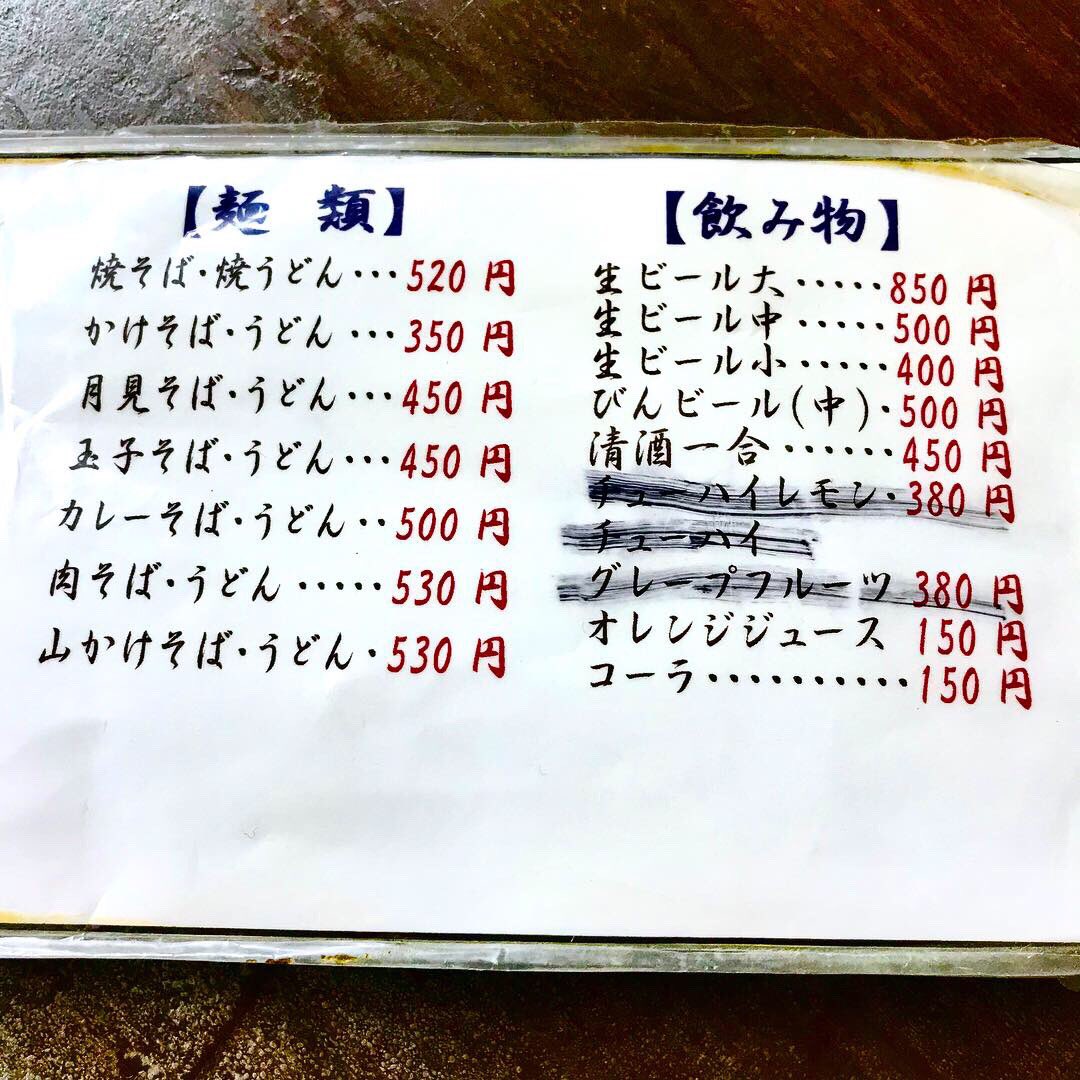 【麺 類】
焼そば・焼うどん・・・520 円
かけそば・うどん・・・350 円
月見そば・うどん・・・450 円
玉子そば・うどん・・・450 円
カレーそば・うどん・・500 円
肉そば・うどん・・・・・530 円
山かけそば・うどん・530 円
【飲み物】
生ビール大・・・・・850 円
生ビール中・・・・・500 円
生ビール小・・・・・400 円
びんビール(中)・500 円
清酒一合・・・・・・450 円
チューハイレモン・380 円
チューハイ
グレープフルーツ 380 円
オレンジジュース 150 円
コーラ・・・・・・・・・・150 円